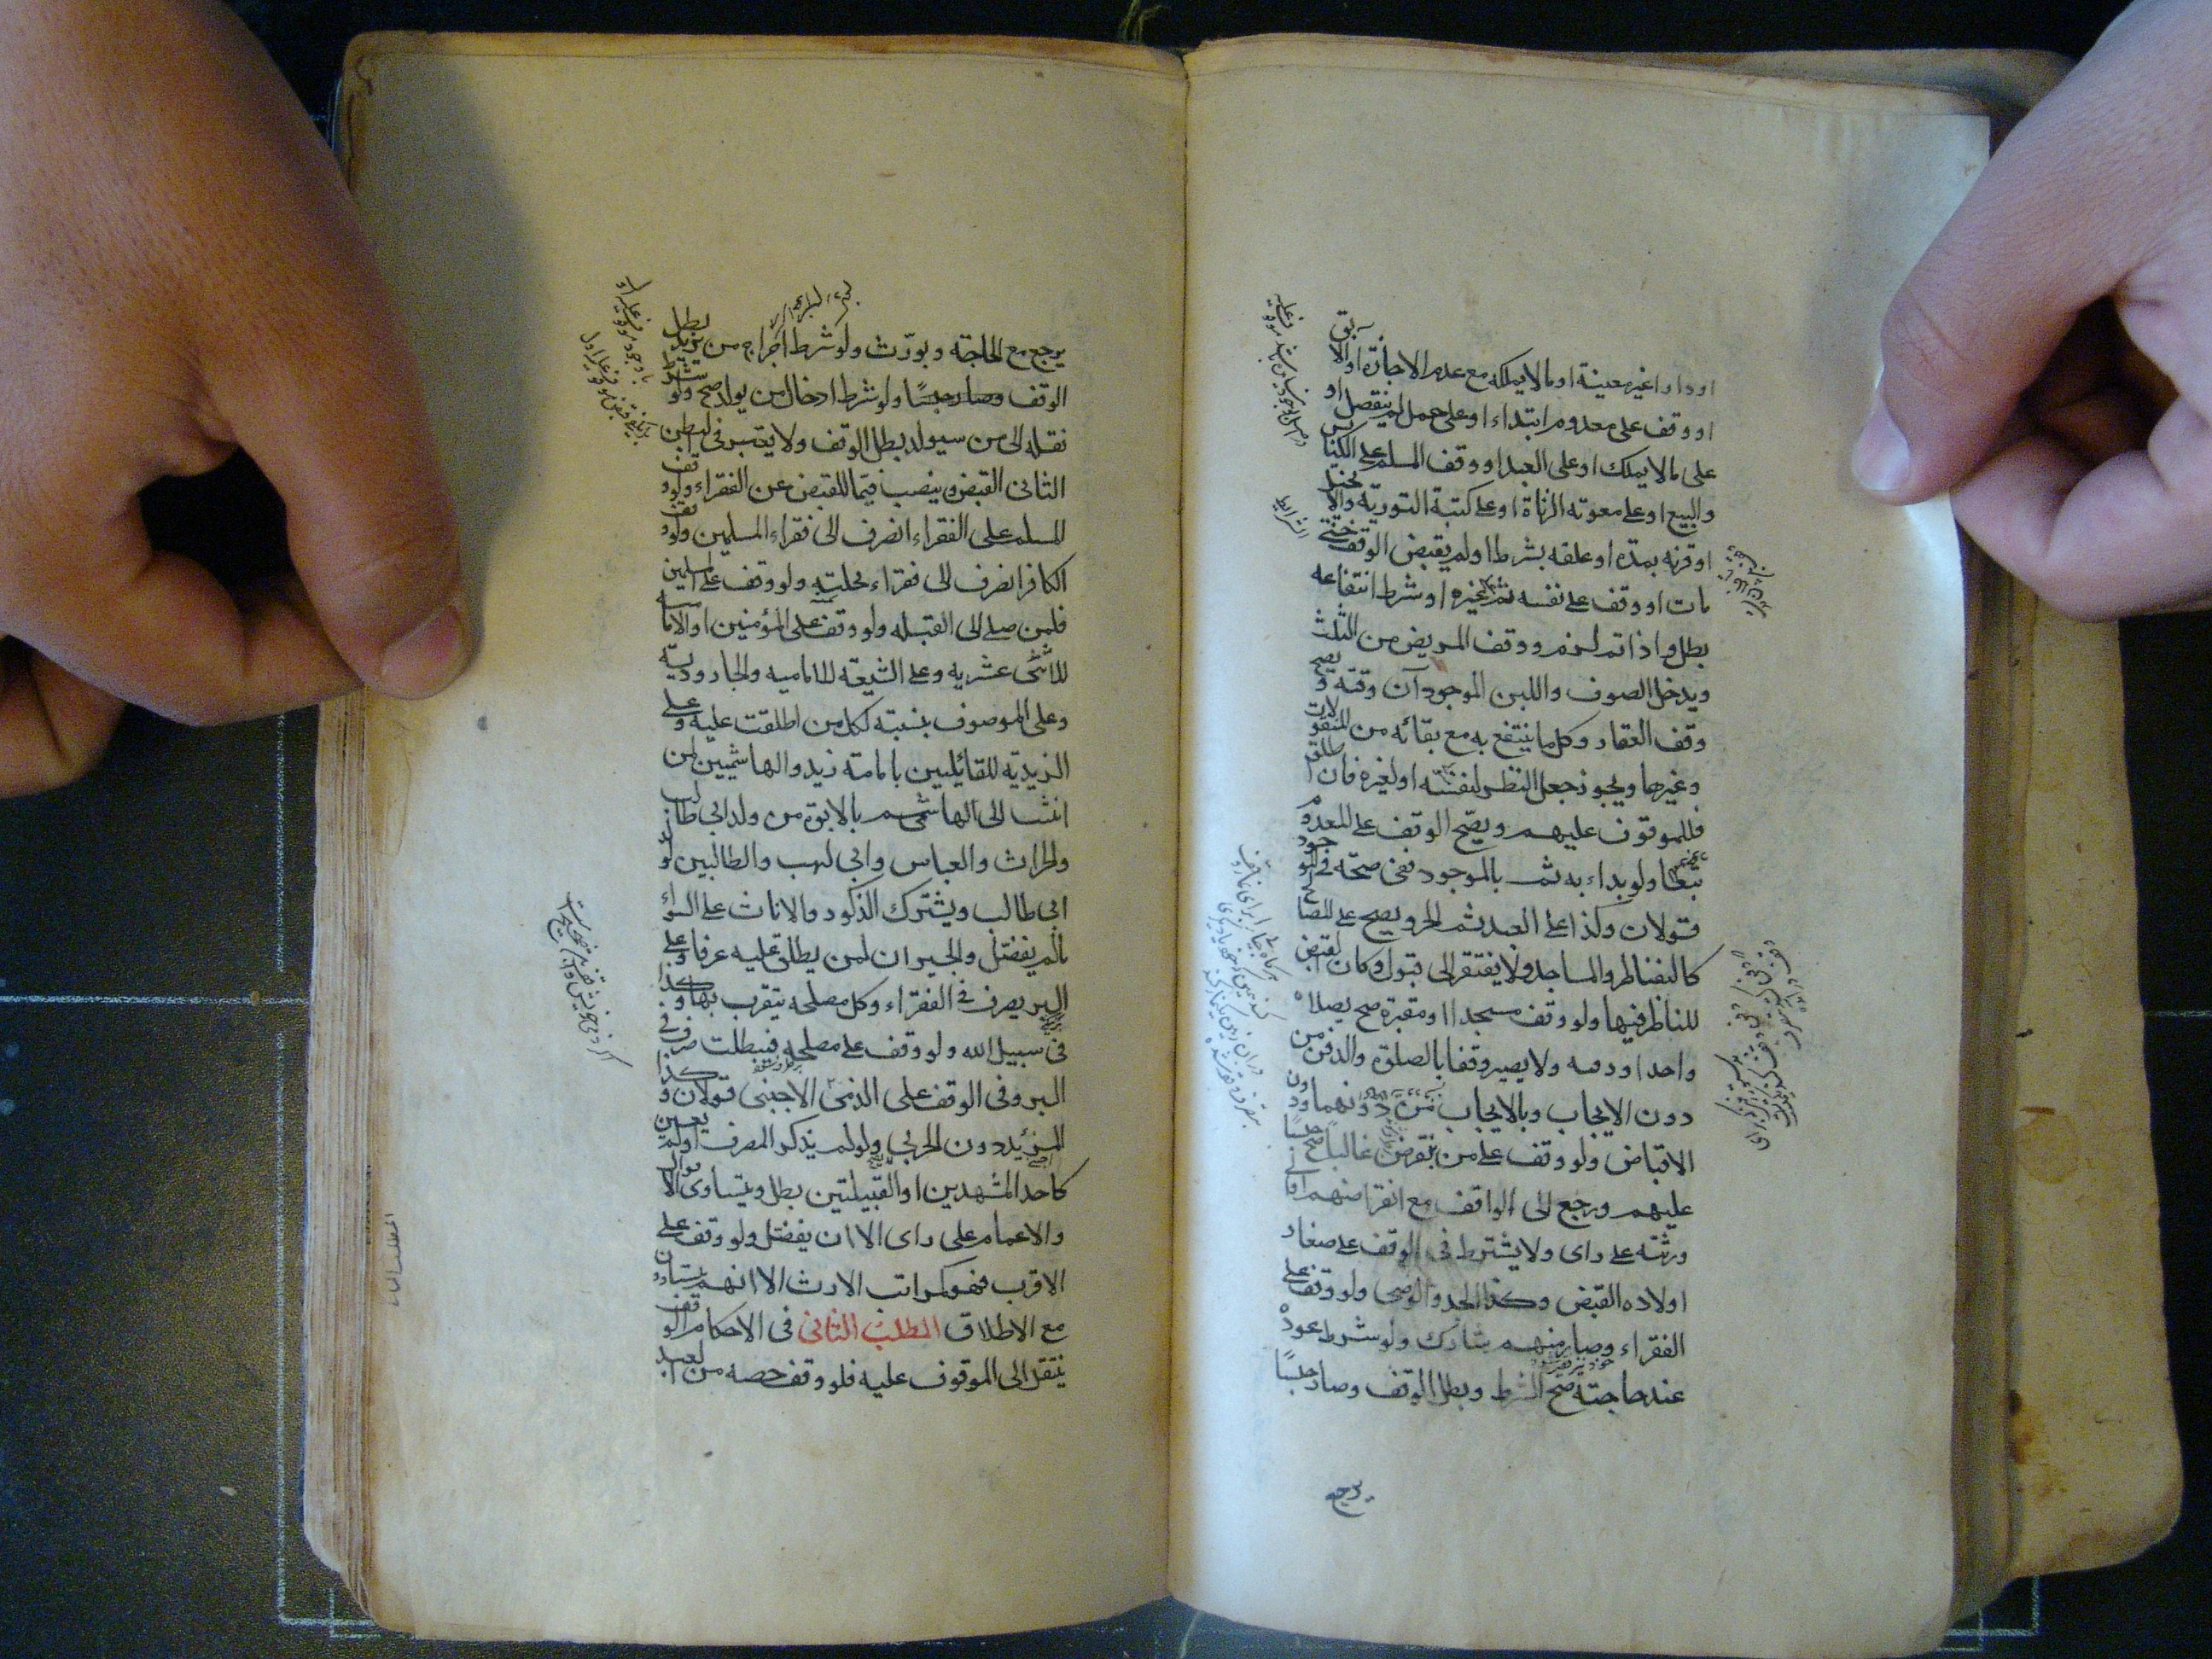 او دارا غير معينة او مالا يملكه مع عدم الاجازة او الآبق
او وقف على معدوم ابتداء او على حمل لم ينفصل او
على مالا يملك او على العبد او وقف المسلم على الكنايس
والبيع او على معونه الزناة او على كتبة التورية والانجيل
او قرنه بمدة او علقه بشرط او لم يقبض الوقف حتى
مات او وقف على نفسه ثم غيره او شرط انتفاعه
بطل واذا تم لزم ووقف المريض من الثلث
ويدخل الصوف واللبن الموجود آن وقته ويصح
وقف العقار وكل ما ينتفع به مع بقائه من المنقولات
وغيرها ويجوز جعل النظر لنفسه او لغيره فان اطلق
فللموقوف عليهم ويصح الوقف على المعدوم
تبعا ولو بداء به ثم بالموجود ففي صحته في الموجود
قولان وكذا على العبد ثم الحر ويصح على المصالح
كالقناطر والمساجد ولا يفتقر الى قبول وكان القبض
للناظر فيها ولو وقف مسجدا او مقبرة صح بصلاة
واحد او دفنه ولا يصير وقفا بالصلوة والدفن من
دون الايجاب وبالايجاب من دونهما ودون
الاقباض ولو وقف على من ينقرض غالبا صح حبسا
عليهم ورجع الى الواقف مع انقراضهم او الى
ورثته على راى ولا يشترط في الوقف على صغار
اولاده القبض وكذا الجد والوصى ولو وقف على
الفقراء وصار منهم شارك ولو شرط عوده
عند حاجته صح الشرط وبطل الوقف وصار حبسا
يرجع
يرجع مع الحاجة ويورّث ولو شرط اخراج من يريد بطل
الوقف وصار حبسًا ولو شرط ادخال من يولد صح ولو شرط
نقله الى من سيولد بطل الوقف ولا يعتبر في البطن
الثاني القبض وينصب قيما للقبض عن الفقراء ولو وقف
المسلم على الفقراء انصرف الى فقراء المسلمين ولو وقف
الكافر انصرف الى فقراء نحلته ولو وقف على المسلمين
فلمن صلى الى القبلة ولو وقف على المؤمنين او الامامية
للاثنى عشريه وعلى الشيعة للاماميه والجاروديه
وعلى الموصوف بنسبته لكل من اطلقت عليه وعلى
الزيديه للقائلين بامامة زيد والهاشميين لمن
انتسب الى الهاشم بالابوة من ولد ابي طالب
والحارث والعباس وابي لهب والطالبيين لولد
ابي طالب ويشترك الذكور والاناث على السواء
مالم يفضل والجيران لمن يطلق عليه عرفا وعلى
البر يصرف في الفقراء وكل مصلحه يتقرب بها وكذا
في سبيل الله ولو وقف على مصلحه فبطلت صرف في
البر وفي الوقف على الذمى الاجنبى قولان وكذا
المرتد دون الحربي ولو لم يذكر المصرف او لم يعين
كاحد المشهدين او القبيلتين بطل ويتساوى الاخوال
والاعمام على راى الا ان يفضل ولو وقف على
الاقرب فهو كمراتب الارث الا انهم يتساوون
مع الاطلاق المطلب الثانى فى الاحكام الوقف
ينتقل الى الموقوف عليه فلو وقف حصه من العبد